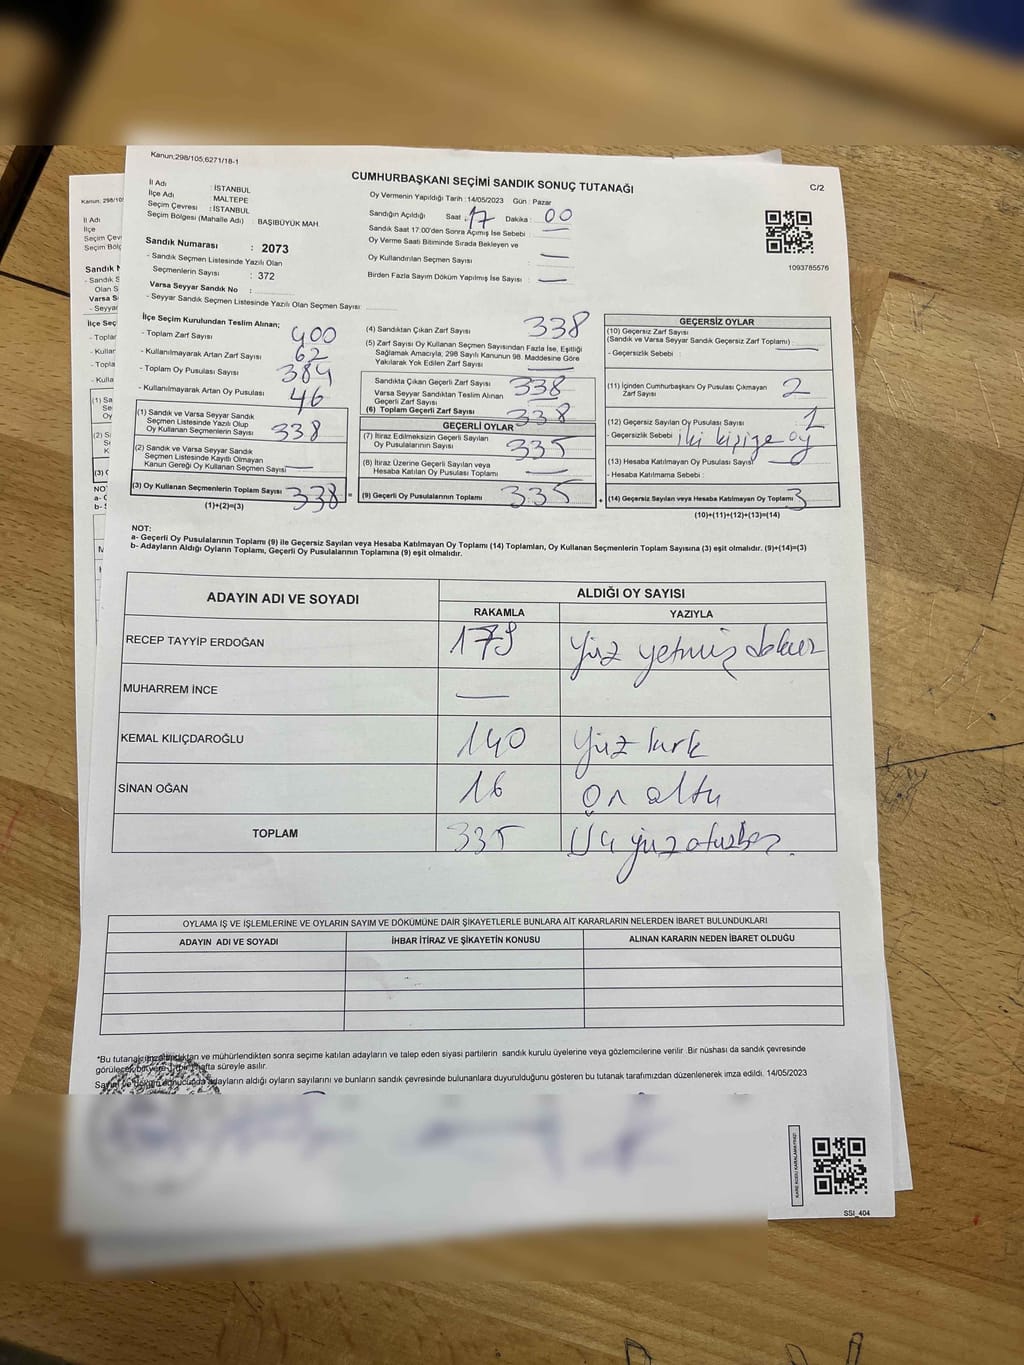 Kanun;298/105,6271/18-1
CUMHURBAŞKANI SEÇİMİ SANDIK SONUÇ TUTANAĞI
C/2
İl Adı : İSTANBUL
İlçe Adı : MALTEPE
Seçim Çevresi : İSTANBUL
Seçim Bölgesi (Mahalle Adı) BAŞIBÜYÜK MAH.
Sandık Numarası : 2073
- Sandık Seçmen Listesinde Yazılı Olan
Seçmenlerin Sayısı : 372
Varsa Seyyar Sandık No :
- Seyyar Sandık Seçmen Listesinde Yazılı Olan Seçmen Sayısı:
Oy Vermenin Yapıldığı Tarih :14/05/2023 Gün : Pazar
Sandığın Açıldığı Saat : 17 Dakika : 00
Sandık Saat 17:00'den Sonra Açımış İse Sebebi : —
Oy Verme Saati Bitiminde Sırada Bekleyen ve
Oy Kullandırılan Seçmen Sayısı : —
Birden Fazla Sayım Döküm Yapılmış İse Sayısı : —
1093785576
İlçe Seçim Kurulundan Teslim Alınan;
- Toplam Zarf Sayısı 400
- Kullanılmayarak Artan Zarf Sayısı 62
- Toplam Oy Pusulası Sayısı 384
- Kullanılmayarak Artan Oy Pusulası 46
(1) Sandık ve Varsa Seyyar Sandık
Seçmen Listesinde Yazılı Olup
Oy Kullanan Seçmenlerin Sayısı 338
(2) Sandık ve Varsa Seyyar Sandık
Seçmen Listesinde Kayıtlı Olmayan
Kanun Gereği Oy Kullanan Seçmen Sayısı —
(3) Oy Kullanan Seçmenlerin Toplam Sayısı 338 =
(1)+(2)=(3)
(4) Sandıktan Çıkan Zarf Sayısı 338
(5) Zarf Sayısı Oy Kullanan Seçmen Sayısından Fazla İse, Eşitliği
Sağlamak Amacıyla, 298 Sayılı Kanunun 98. Maddesine Göre
Yakılarak Yok Edilen Zarf Sayısı —
Sandıkta Çıkan Geçerli Zarf Sayısı 338
Varsa Seyyar Sandıktan Teslim Alınan
Geçerli Zarf Sayısı —
(6) Toplam Geçerli Zarf Sayısı 338
GEÇERLİ OYLAR
(7) İtiraz Edilmeksizin Geçerli Sayılan
Oy Pusulalarının Sayısı 335
(8) İtiraz Üzerine Geçerli Sayılan veya
Hesaba Katılan Oy Pusulası Toplamı —
(9) Geçerli Oy Pusulalarının Toplamı 335 +
GEÇERSİZ OYLAR
(10) Geçersiz Zarf Sayısı
(Sandık ve Varsa Seyyar Sandık Geçersiz Zarf Toplamı) —
- Geçersizlik Sebebi :
(11) İçinden Cumhurbaşkanı Oy Pusulası Çıkmayan
Zarf Sayısı 2
(12) Geçersiz Sayılan Oy Pusulası Sayısı 1
- Geçersizlik Sebebi : iki kişiye oy
(13) Hesaba Katılmayan Oy Pusulası Sayısı —
- Hesaba Katılmama Sebebi :
(14) Geçersiz Sayılan veya Hesaba Katılmayan Oy Toplamı 3
(10)+(11)+(12)+(13)=(14)
NOT:
a- Geçerli Oy Pusulalarının Toplamı (9) ile Geçersiz Sayılan veya Hesaba Katılmayan Oy Toplamı (14) Toplamları, Oy Kullanan Seçmenlerin Toplam Sayısına (3) eşit olmalıdır. (9)+(14)=(3)
b- Adayların Aldığı Oyların Toplamı, Geçerli Oy Pusulalarının Toplamına (9) eşit olmalıdır.
ADAYIN ADI VE SOYADI
ALDIĞI OY SAYISI
RAKAMLA YAZIYLA
RECEP TAYYİP ERDOĞAN 179 Yüz yetmiş dokuz
MUHARREM İNCE —
KEMAL KILIÇDAROĞLU 140 Yüz kırk
SİNAN OĞAN 16 On altı
TOPLAM 335 Üç yüz otuzbeş.
OYLAMA İŞ VE İŞLEMLERİNE VE OYLARIN SAYIM VE DÖKÜMÜNE DAİR ŞİKAYETLERLE BUNLARA AİT KARARLARIN NELERDEN İBARET BULUNDUKLARI
ADAYIN ADI VE SOYADI İHBAR İTİRAZ VE ŞİKAYETİN KONUSU ALINAN KARARIN NEDEN İBARET OLDUĞU
*Bu tutanak imzalandıktan ve mühürlendikten sonra seçime katılan adayların ve talep eden siyasi partilerin sandık kurulu üyelerine veya gözlemcilerine verilir .Bir nüshası da sandık çevresinde
görülecek bir yere bir hafta süreyle asılır.
adayların aldığı oyların sayılarını ve bunların sandık çevresinde bulunanlara duyurulduğunu gösteren bu tutanak tarafımızdan düzenlenerek imza edildi. 14/05/2023
SSI_404